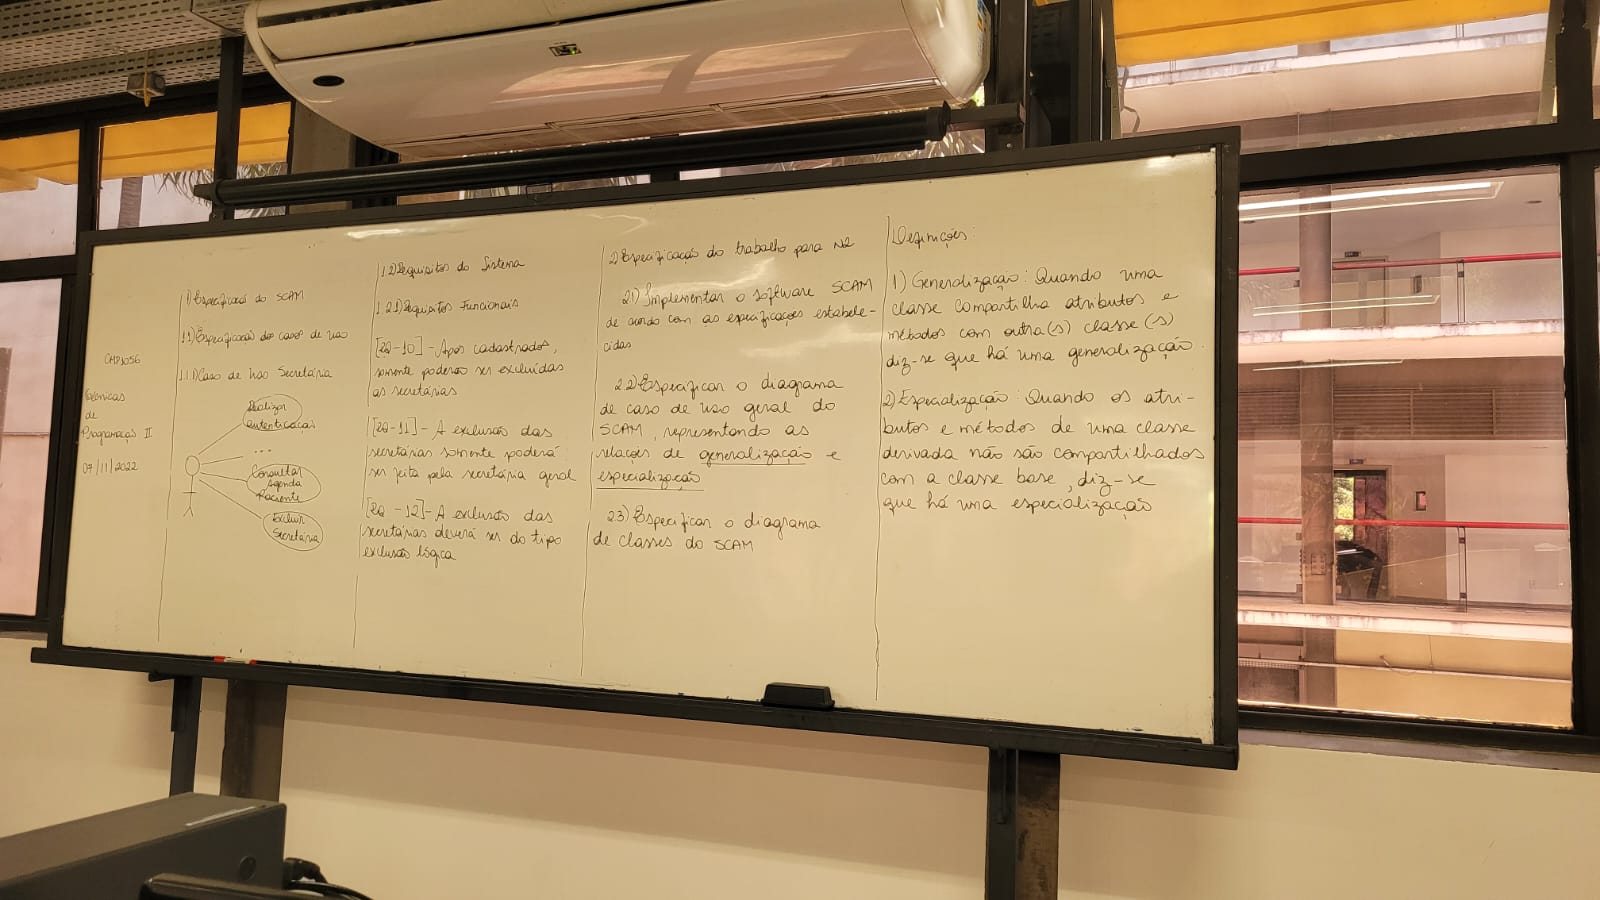 CMP1056
Técnicas
de
Programação II
07/11/2022
1) Especificação do SCAM
1.1) Especificação dos casos de uso
1.1.1) Caso de Uso Secretária
Realizar
autenticação
...
Consultar
Agenda
Paciente
Excluir
Secretária
1.2) Requisitos do Sistema
1.2.1) Requisitos Funcionais
[RQ-10] - Após cadastrados,
somente poderão ser excluídas
as secretárias
[RQ-11] - A exclusão das
secretárias somente poderá
ser feita pela secretária geral
[RQ-12] - A exclusão das
secretárias deverá ser do tipo
exclusão lógica
2) Especificação do trabalho para N2
2.1) Implementar o software SCAM
de acordo com as especificações estabele-
cidas
2.2) Especificar o diagrama
de caso de uso geral do
SCAM, representando as
relações de generalização e
especialização
2.3) Especificar o diagrama
de classes do SCAM
Definições:
1) Generalização: Quando uma
classe compartilha atributos e
métodos com outra(s) classe(s)
diz-se que há uma generalização.
2) Especialização: Quando os atri-
butos e métodos de uma classe
derivada não são compartilhados
com a classe base, diz-se
que há uma especialização